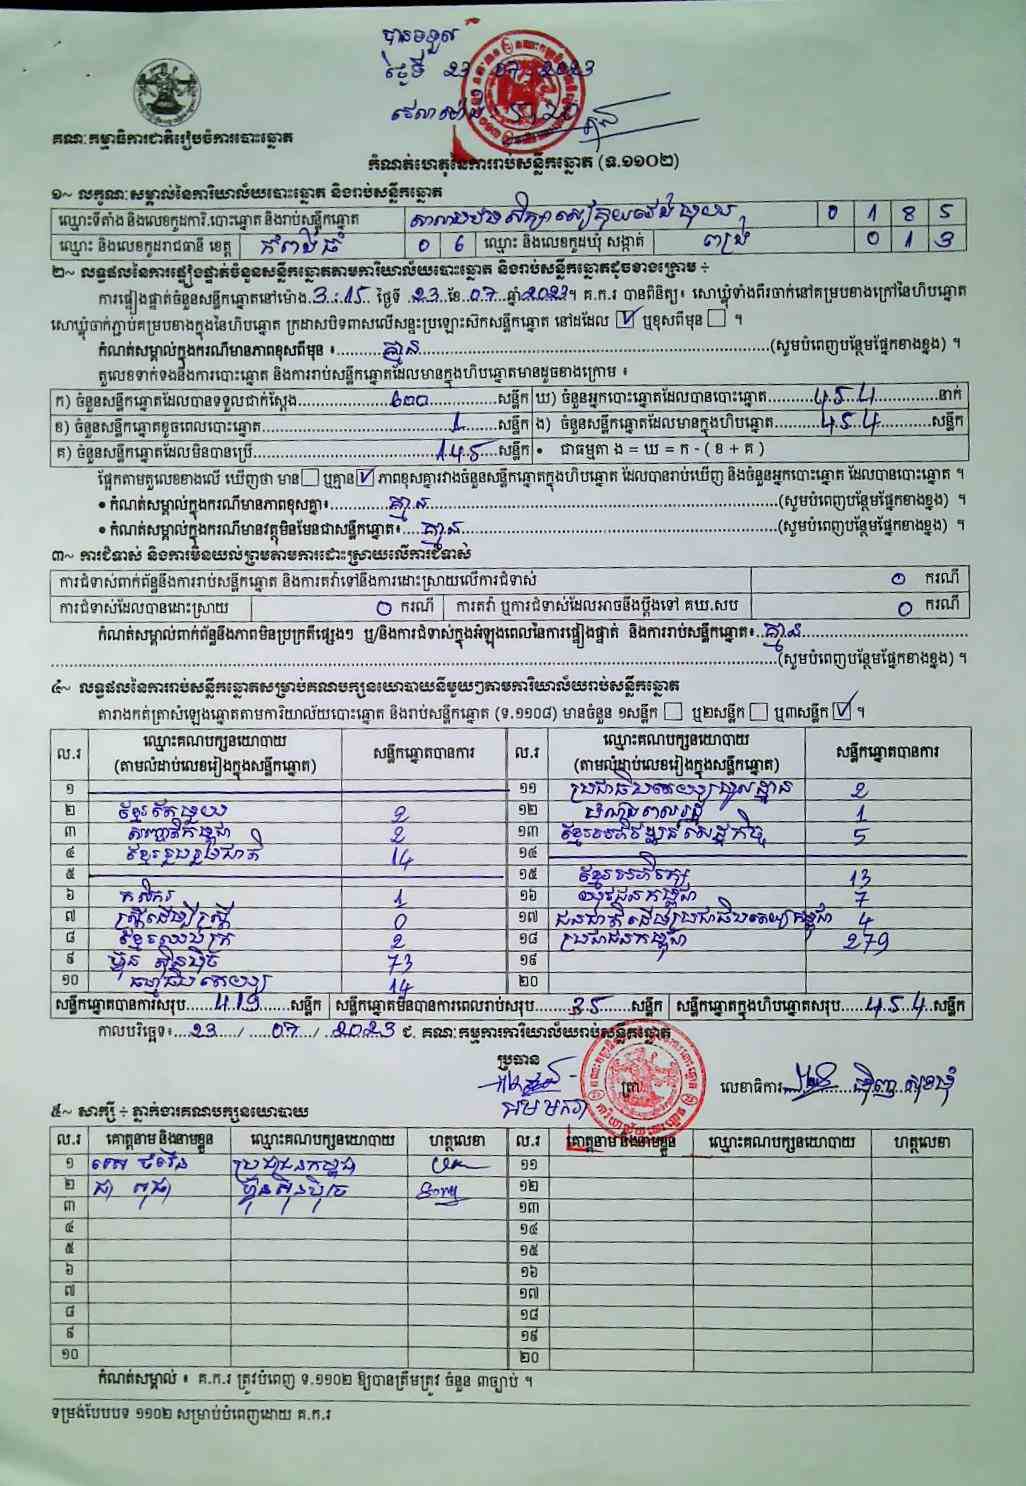 បានទទួល
ថ្ងៃទី 23 07 2023
គណៈកម្មាធិការជាតិរៀបចំការបោះឆ្នោត
កំណត់ហេតុនៃការរាប់សន្លឹកឆ្នោត (ទ.១១០២)
១~ លក្ខណៈសម្គាល់នៃការិយាល័យបោះឆ្នោត និងរាប់សន្លឹកឆ្នោត
ឈ្មោះទីតាំង និងលេខកូដការិ.បោះឆ្នោត និងរាប់សន្លឹកឆ្នោត 0 1 8 5
ឈ្មោះ និងលេខកូដរាជធានី ខេត្ត កំពង់ធំ 0 6 ឈ្មោះ និងលេខកូដឃុំ សង្កាត់ 0 1 3
២~ លទ្ធផលនៃការផ្ទៀងផ្ទាត់ចំនួនសន្លឹកឆ្នោតតាមការិយាល័យបោះឆ្នោត និងរាប់សន្លឹកឆ្នោតដូចខាងក្រោម ÷
ការផ្ទៀងផ្ទាត់ចំនួនសន្លឹកឆ្នោតនៅម៉ោង 3:15 ថ្ងៃទី 23 ខែ 07 ឆ្នាំ 2023 ។ គ.ក.រ បានពិនិត្យ៖ សោឃ្លុំទាំងពីរចាក់នៅគម្របខាងក្រៅនៃហិបឆ្នោត
សោឃ្លុំចាក់ភ្ជាប់គម្របខាងក្នុងនៃហិបឆ្នោត ក្រដាសបិទពាសលើសន្ទះប្រឡោះស៊កសន្លឹកឆ្នោត នៅដដែល ☑ ឬខុសពីមុន ☐ ។
កំណត់សម្គាល់ក្នុងករណីមានភាពខុសពីមុន ៖ គ្មាន (សូមបំពេញបន្ថែមផ្នែកខាងខ្នង) ។
តួលេខទាក់ទងនឹងការបោះឆ្នោត និងការរាប់សន្លឹកឆ្នោតដែលមានក្នុងហិបឆ្នោតមានដូចខាងក្រោម ៖
ក) ចំនួនសន្លឹកឆ្នោតដែលបានទទួលជាក់ស្តែង 600 សន្លឹក ឃ) ចំនួនអ្នកបោះឆ្នោតដែលបានបោះឆ្នោត 454 នាក់
ខ) ចំនួនសន្លឹកឆ្នោតខូចពេលបោះឆ្នោត 1 សន្លឹក ង) ចំនួនសន្លឹកឆ្នោតដែលមានក្នុងហិបឆ្នោត 454 សន្លឹក
គ) ចំនួនសន្លឹកឆ្នោតដែលមិនបានប្រើ 145 សន្លឹក • ជាធម្មតា ង = ឃ = ក - ( ខ + គ )
ផ្អែកតាមតួលេខខាងលើ ឃើញថា មាន ☐ ឬគ្មាន ☑ ភាពខុសគ្នារវាងចំនួនសន្លឹកឆ្នោតក្នុងហិបឆ្នោត ដែលបានរាប់ឃើញ និងចំនួនអ្នកបោះឆ្នោត ដែលបានបោះឆ្នោត ។
• កំណត់សម្គាល់ក្នុងករណីមានភាពខុសគ្នា៖ គ្មាន (សូមបំពេញបន្ថែមផ្នែកខាងខ្នង) ។
• កំណត់សម្គាល់ក្នុងករណីមានវត្ថុមិនមែនជាសន្លឹកឆ្នោត៖ គ្មាន (សូមបំពេញបន្ថែមផ្នែកខាងខ្នង) ។
៣~ ការជំទាស់ និងការមិនយល់ព្រមតាមការដោះស្រាយលើការជំទាស់
ការជំទាស់ពាក់ព័ន្ធនឹងការរាប់សន្លឹកឆ្នោត និងការតវ៉ាទៅនឹងការដោះស្រាយលើការជំទាស់ 0 ករណី
ការជំទាស់ដែលបានដោះស្រាយ 0 ករណី ការតវ៉ា ឬការជំទាស់ដែលអាចនឹងប្តឹងទៅ គឃ.សប 0 ករណី
កំណត់សម្គាល់ពាក់ព័ន្ធនឹងភាពមិនប្រក្រតីផ្សេងៗ ឬ/និងការជំទាស់ក្នុងអំឡុងពេលនៃការផ្ទៀងផ្ទាត់ និងការរាប់សន្លឹកឆ្នោត៖ គ្មាន
(សូមបំពេញបន្ថែមផ្នែកខាងខ្នង) ។
៤~ លទ្ធផលនៃការរាប់សន្លឹកឆ្នោតសម្រាប់គណបក្សនយោបាយនីមួយៗតាមការិយាល័យរាប់សន្លឹកឆ្នោត
តារាងកត់ត្រាសំឡេងឆ្នោតតាមការិយាល័យបោះឆ្នោត និងរាប់សន្លឹកឆ្នោត (ទ.១១០៨) មានចំនួន ១សន្លឹក ☐ ឬ២សន្លឹក ☐ ឬ៣សន្លឹក ☑ ។
ល.រ ឈ្មោះគណបក្សនយោបាយ (តាមលំដាប់លេខរៀងក្នុងសន្លឹកឆ្នោត) សន្លឹកឆ្នោតបានការ ល.រ ឈ្មោះគណបក្សនយោបាយ (តាមលំដាប់លេខរៀងក្នុងសន្លឹកឆ្នោត) សន្លឹកឆ្នោតបានការ
១ ១១ ប្រជាធិបតេយ្យមូលដ្ឋាន 2
២ ខ្មែរតែមួយ 2 ១២ 1
៣ សញ្ជាតិកម្ពុជា 2 ១៣ ខ្មែរអភិវឌ្ឍន៍សេដ្ឋកិច្ច 5
៤ ខ្មែររួបរួមជាតិ 14 ១៤
៥ ១៥ ខ្មែរអភិរក្ស 13
៦ កសិករ 1 ១៦ យុវជនកម្ពុជា 7
៧ ស្ត្រីដើម្បីស្ត្រី 0 ១៧ ជនជាតិដើមប្រជាធិបតេយ្យកម្ពុជា 4
៨ ខ្មែរឈប់ក្រ 2 ១៨ ប្រជាជនកម្ពុជា 279
៩ ហ៊្វុនស៊ិនប៉ិច 73 ១៩
១០ ធម្មាធិបតេយ្យ 14 ២០
សន្លឹកឆ្នោតបានការសរុប 419 សន្លឹក សន្លឹកឆ្នោតមិនបានការពេលរាប់សរុប 35 សន្លឹក សន្លឹកឆ្នោតក្នុងហិបឆ្នោតសរុប 454 សន្លឹក
កាលបរិច្ឆេទ៖ 23 / 07 / 2023 ជ. គណៈកម្មការការិយាល័យរាប់សន្លឹកឆ្នោត
ប្រធាន
ត្រា លេខាធិការ
៥~ សាក្សី ÷ ភ្នាក់ងារគណបក្សនយោបាយ
ល.រ គោត្តនាម និងនាមខ្លួន ឈ្មោះគណបក្សនយោបាយ ហត្ថលេខា ល.រ គោត្តនាម និងនាមខ្លួន ឈ្មោះគណបក្សនយោបាយ ហត្ថលេខា
១ ប្រជាជនកម្ពុជា ១១
២ ហ៊្វុនស៊ិនប៉ិច ១២
៣ ១៣
៤ ១៤
៥ ១៥
៦ ១៦
៧ ១៧
៨ ១៨
៩ ១៩
១០ ២០
កំណត់សម្គាល់ ៖ គ.ក.រ ត្រូវបំពេញ ទ.១១០២ ឱ្យបានត្រឹមត្រូវ ចំនួន ៣ច្បាប់ ។
ទម្រង់បែបបទ ១១០២ សម្រាប់បំពេញដោយ គ.ក.រ